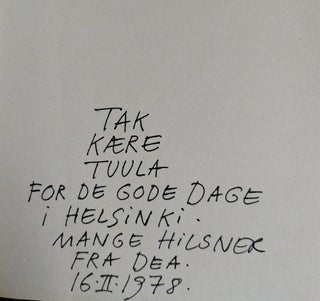 TAK
KÆRE
TUULA
FOR DE GODE DAGE
i HELSiNKi.
MANGE HiLSNER
FRA DEA.
16.II.1978.